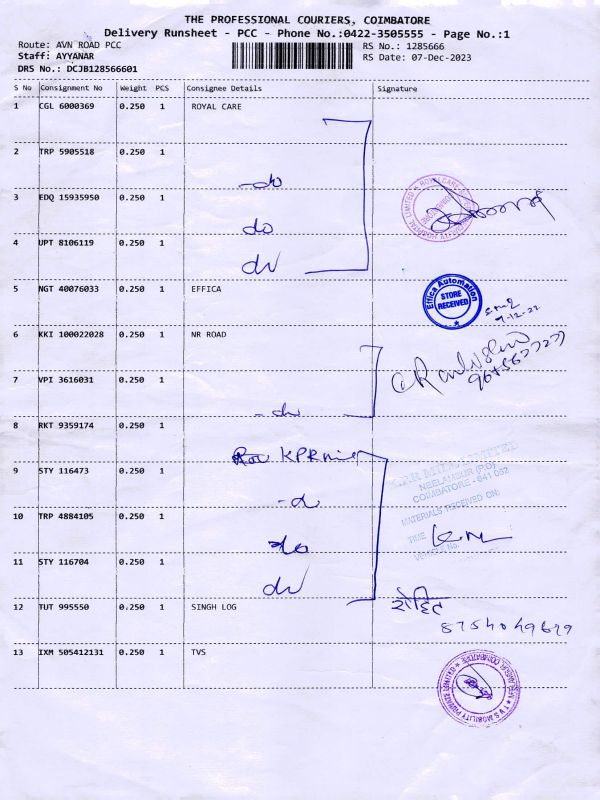 THE PROFESSIONAL COURIERS, COIMBATORE
Delivery Runsheet - PCC - Phone No.:0422-3505555 - Page No.:1
Route: AVN ROAD PCC
RS No.: 1285666
Staff: AYYANAR
RS Date: 07-Dec-2023
DRS No.: DCJB128566601
S No Consignment No Weight PCS Consignee Details Signature
1 CGL 6000369 0.250 1 ROYAL CARE
2 TRP 5905518 0.250 1
-do
3 EDQ 15935950 0.250 1
do
4 UPT 8106119 0.250 1
do
5 NGT 40076033 0.250 1 EFFICA
Effica Automation
STORE
RECEIVED
6 KKI 100022028 0.250 1 NR ROAD
7 VPI 3616031 0.250 1
-do
8 RKT 9359174 0.250 1
KPR mill
9 STY 116473 0.250 1
-do
K.P.R MILL LIMITED
NEELAMBUR (PO)
COIMBATORE - 641 062
MATERIALS RECEIVED ON:
10 TRP 4884105 0.250 1
do
TIME
VEHICLE No.
11 STY 116704 0.250 1
do
12 TUT 995550 0.250 1 SINGH LOG
रोहित
8754049679
13 IXM 505412131 0.250 1 TVS
TVS MOBILITY PRIVATE LIMITED